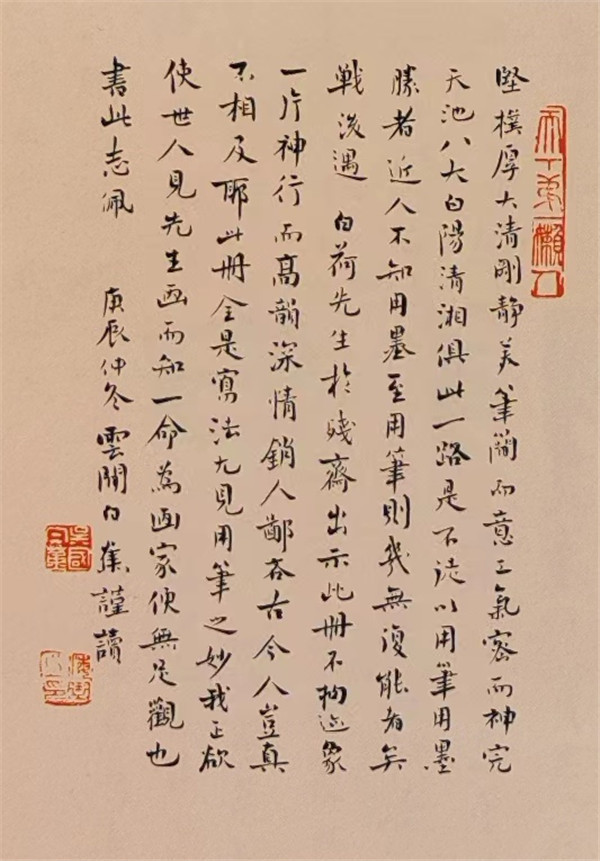 堅樸厚大清剛靜美筆簡而意工氣密而神完
天池八大白陽清湘俱此一路是不徒以用筆用墨
勝者近人不知用墨至用筆則幾無復能者矣
戰後遇 白荷先生於殘齋出示此冊不拘迹象
一片神行而高韻深情銷人鄙吝古今人豈真
不相及耶此冊全是寫法尤見用筆之妙我正欲
使世人見先生画而知一命為画家便無足觀也
書此志佩 庚辰仲冬雲間白蕉謹讀